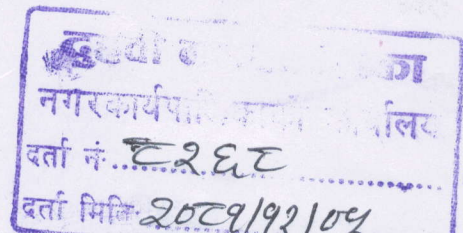 नगरकार्यपालिकाको कार्यालय
दर्ता नं. ८२६८
दर्ता मिति २०८१/१२/०५